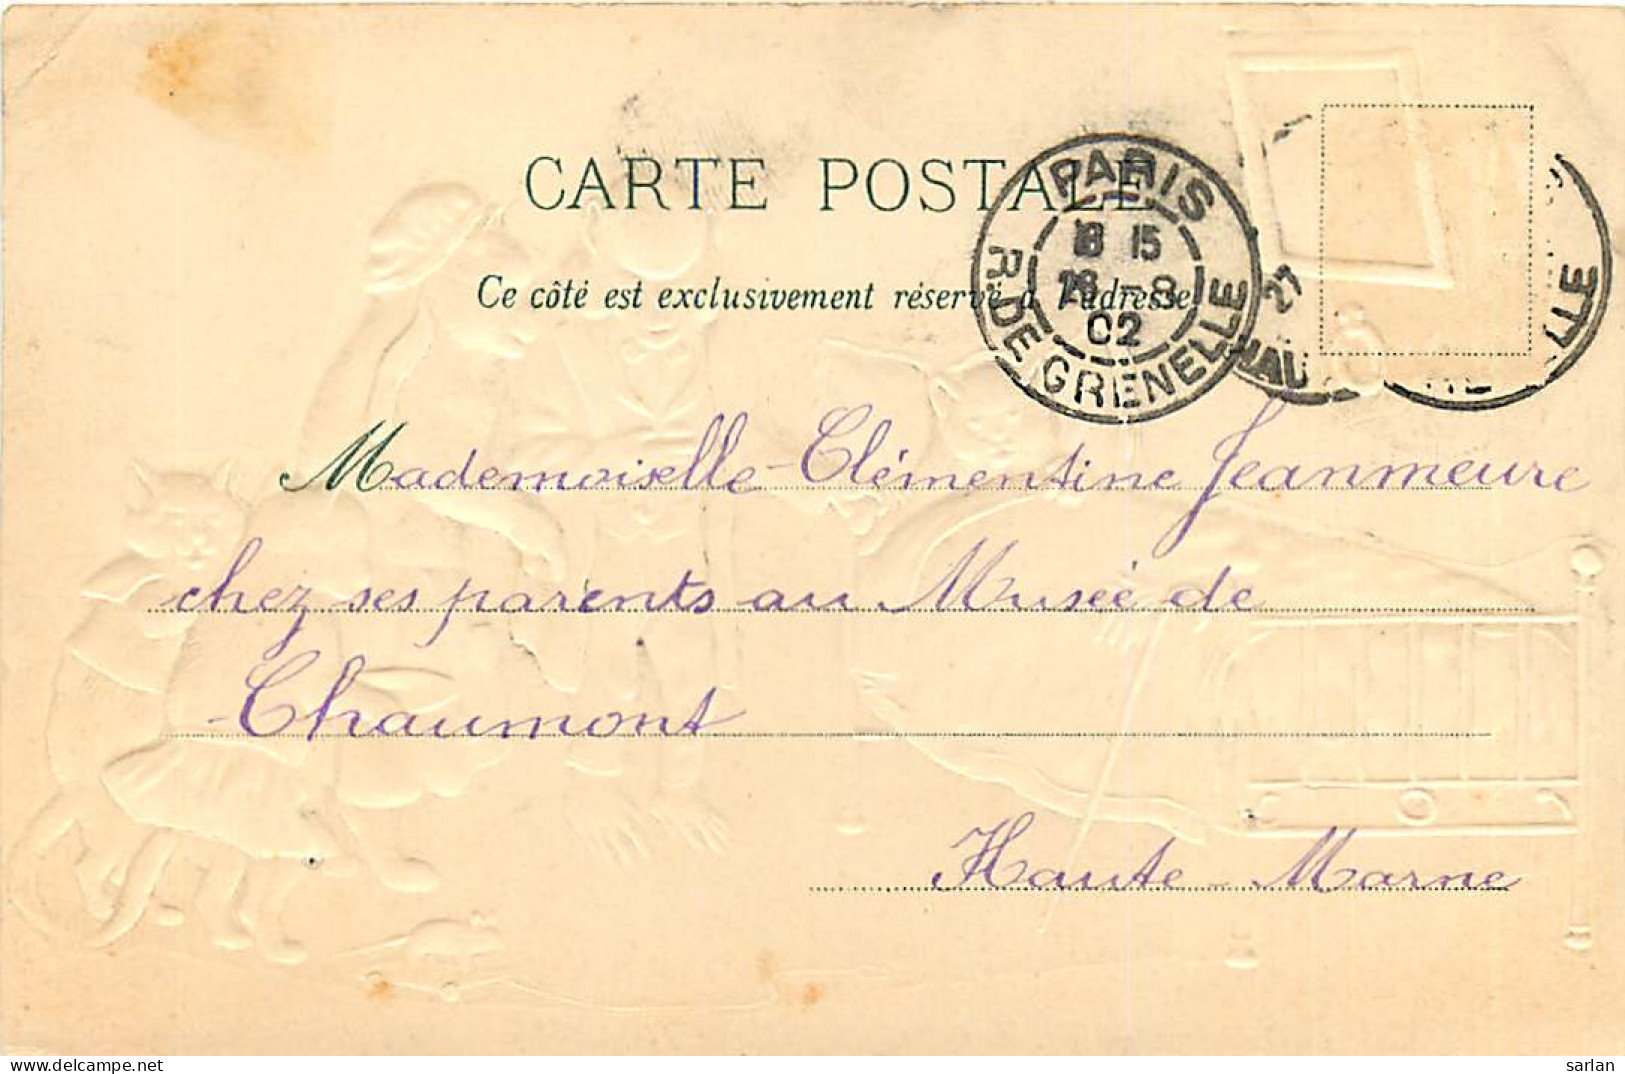 CARTE POSTALE
Ce côté est exclusivement réservé à l'adresse
PARIS
18 15
26 - 8
02
R. DE GRENELLE
27
HAU
LLE
Mademoiselle Clémentine Jeanmeure
chez ses parents au Musée de
Chaumont
Haute-Marne
www.delcampe.net
sarlan